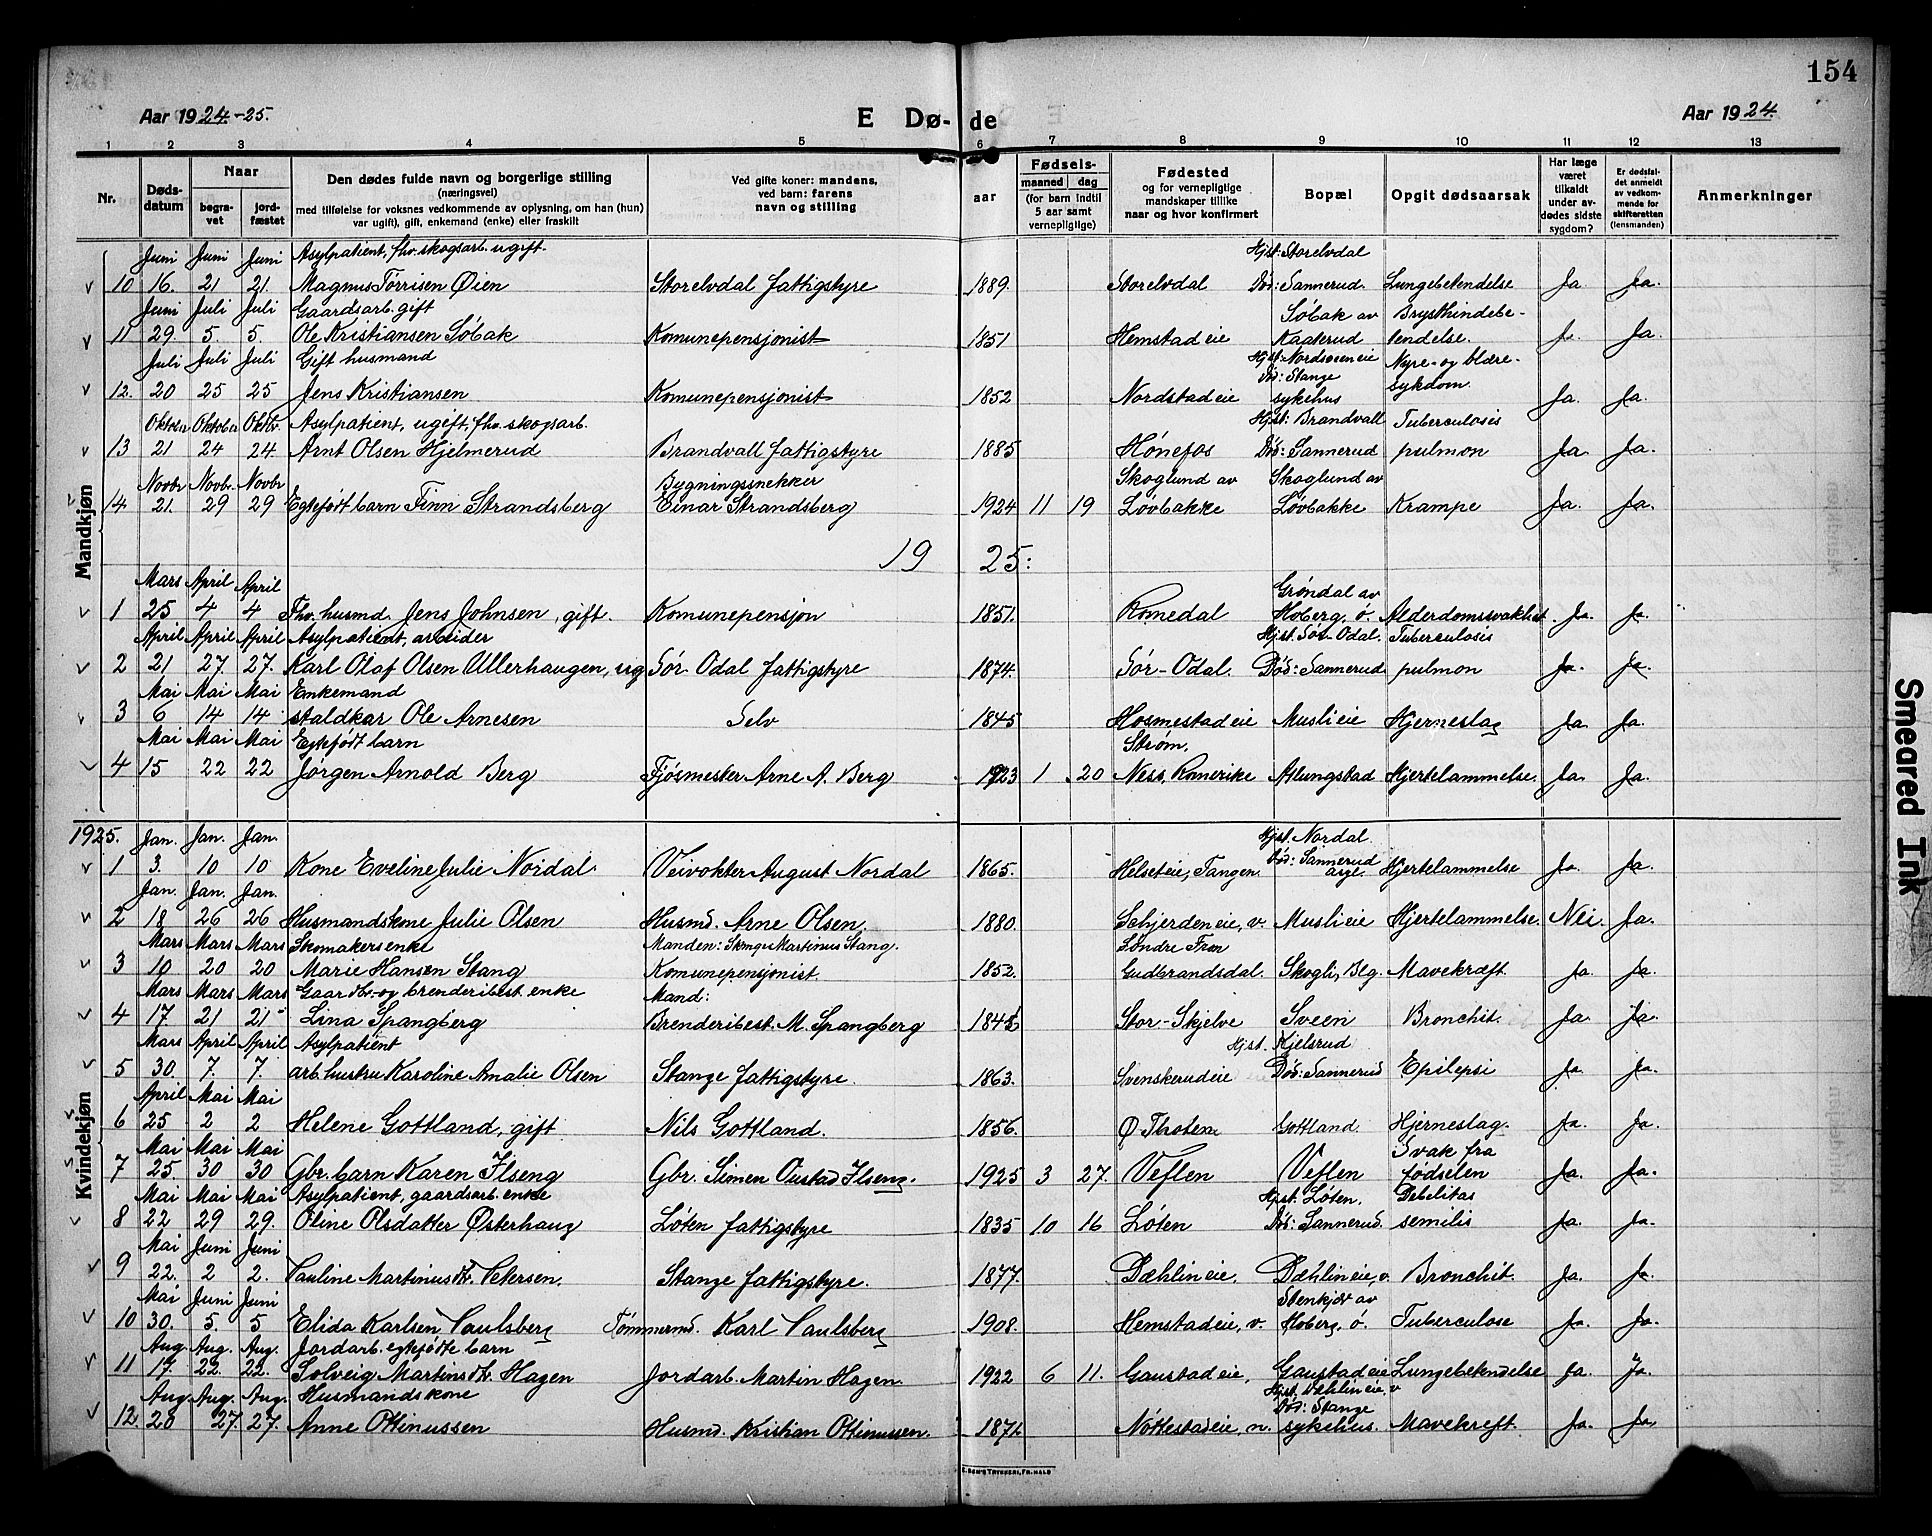 154
Aar 1924.-25.
E Dø- de
Aar 1924.
1 2 3 4 5 6 7 8 9 10 11 12 13
Nr.
Døds-datum
Naar
begra-vet
jord-fæstet
Den dødes fulde navn og borgerlige stilling
(næringsvei)
med tilføielse for voksnes vedkommende av oplysning, om han (hun)
var ugift), gift, enkemand (enke) eller fraskilt
Ved gifte koner: mandens,
ved barn: farens
navn og stilling
aar
Fødsels-
maaned dag
(for barn indtil 5 aar samt vernepligtige)
Fødested
og for vernepligtige
mandskaper tillike
naar og hvor konfirmert
Bopæl
Opgit dødsaarsak
Har læge været tilkaldt under av-dødes sidste sygdom?
Er dødsfal-det anmeldt av vedkom-mende for skifteretten (lensmanden)
Anmerkninger
Mandkjøn
Juni Juni Juni Asylpatient, fhv. skogsarb. ugift. Hjst: Storelvdal
10 16. 21 21. Magnus Tørrisen Øien Storelvdal fattigstyre 1889. Storelvdal Død: Sannerud. Lungebetendelse Ja Ja.
Juni Juli Juli Gaardsarb. gift Søbak av Brysthindebe-
11 29. 5. 5. Ole Kristiansen Søbak Komunepensjonist 1851 Hemstadeie Kaaterud tendelse. Ja. Ja.
Juli Juli Juli Gift husmand Hjst: Nordsveeneie Død: Stange Nyre- og blære-
12. 20 25 25 Jens Kristiansen Komunepensjonist 1852 Nordstadeie sykehus sykdom. Ja. Ja.
Oktober Oktober Oktbr. Asylpatient, ugift, fhv. skogsarb. Hjst: Brandvall Tuberculosis
13 21 24 24 Arnt Olsen Hjelmerud Brandvall fattigstyre 1885 Hønefos Død: Sannerud pulmon Ja. Ja.
Novbr Novbr. Novbr Bygningssnekker Skoglund av Skoglund av
14 21. 29 29 Egtefødt barn Finn Strandsberg Einar Strandsberg 1924 11 19 Løvbakke Løvbakke Krampe Ja. Ja.
19 25:
Mars April April Grøndal av
1 25 4 4 Fhv. husmd. Jens Johnsen, gift. Komunepensjon 1851. Romedal Hoberg, ø. Alderdomssvakhet. Ja. Ja.
April April April Asylpatient, arbeider Hjst. Sør-Odal. Tuberculosis
2 21 27. 27. Karl Olaf Olsen Ullerhaugen, ug Sør-Odal fattigstyre 1874. Sør-Odal. Død: Sannerud pulmon Ja. Ja.
Mai Mai Mai Enkemand
3 6 14 14 staldkar Ole Arnesen Selv 1845 Hosmestadeie Muslieie Hjerneslag Ja Ja.
Mai Mai Mai Egtefødt barn Strøm,
4 15 22 22 Jørgen Arnold Berg Fjøsmester Arne A. Berg 1923 1 20 Ness, Romerike Atlungstad Hjertelammelse. Ja. Ja.
Kvindekjøn
1925. Jan. Jan. Jan. Hjst. Nordal
1 3. 10 10 Kone Eveline Julie Nordal. Veivokter August Nordal 1865. Helseteie, Tangen. Død: Sannerud asyl. Hjertelammelse Ja. Ja.
Jan. Jan. Jan.
2 18 26 26 Husmandskone Julie Olsen Husmd. Arne Olsen. 1880. v. Muslieie Hjertelammelse. Nei. Ja.
Mars Mars Mars Skomakersenke Manden: Martinus Stang. Søndre Fron
3 10 20 20 Marie Hansen Stang Komunepensjonist. 1852. Gudbrandsdal. Skogli, Blg. Mavekræft. Ja Ja.
Mars Mars Mars Gaardbr.- og brenderibest. enke Mand:
4 17. 21 21 Lina Spangberg Brenderibest. M. Spangberg 1845 Stor-Skjelve Sveen Bronchit. Ja. Ja.
Mars April April Asylpatient Hjst. Hjelsrud
5 30. 7. 7. arb. hustru Karoline Amalie Olsen Stange fattigstyre. 1863. Svenskerudeie Død: Sannerud Epilepsi Ja Ja.
April Mai Mai
6 25 2 2 Helene Gottland, gift Nils Gottland. 1856. Ø. Thoten Gottland. Hjerneslag. Ja. Ja.
Mai Mai Mai Svak fra
7 25. 30 30 Gbr. barn Karen Ilseng Gbr. Simen Oustad Ilseng. 1925 3 27. Veflen Veflen fødselen Ja. Ja.
Mai Mai Mai Asylpatient, gaardsarb. enke Hjst. Løten. Debilitas
8 22 29 29. Oline Olsdatter Østerhaug Løten fattigstyre 1835 10 16 Løten Død: Sannerud. semilis Ja. Ja.
Mai Juni Juni
9 22. 2 2. Pauline Martinusdtr. Petersen. Stange fattigstyre. 1877. Dæhlineie. Dæhlineie, v Bronchit. Ja. Ja.
Mai Juni Juni Stenkjør av
10 30. 5. 5 Elida Karlsen Paulsberg Tømmermd. Karl Paulsberg 1908. Hemstadeie, v. Hoberg, ø. Tuberculose Ja. Ja.
Aug. Aug. Aug. Jordarb. egtefødte barn
11 17. 22. 22. Solveig Martinsdtr. Hagen Jordarb. Martin Hagen. 1922 6 11. Gaustadeie, Gaustadeie Lungebetendelse Ja. Ja.
Aug. Aug. Aug. Husmandskone Hjst. Dæhlineie, v Død: Stange
12. 20 27. 27. Anne Ottinussen Husmd. Kristian Ottinussen. 1871. Nøttestadeie, n. sykehus. Mavekreft. Ja. Ja.
Smeared Ink